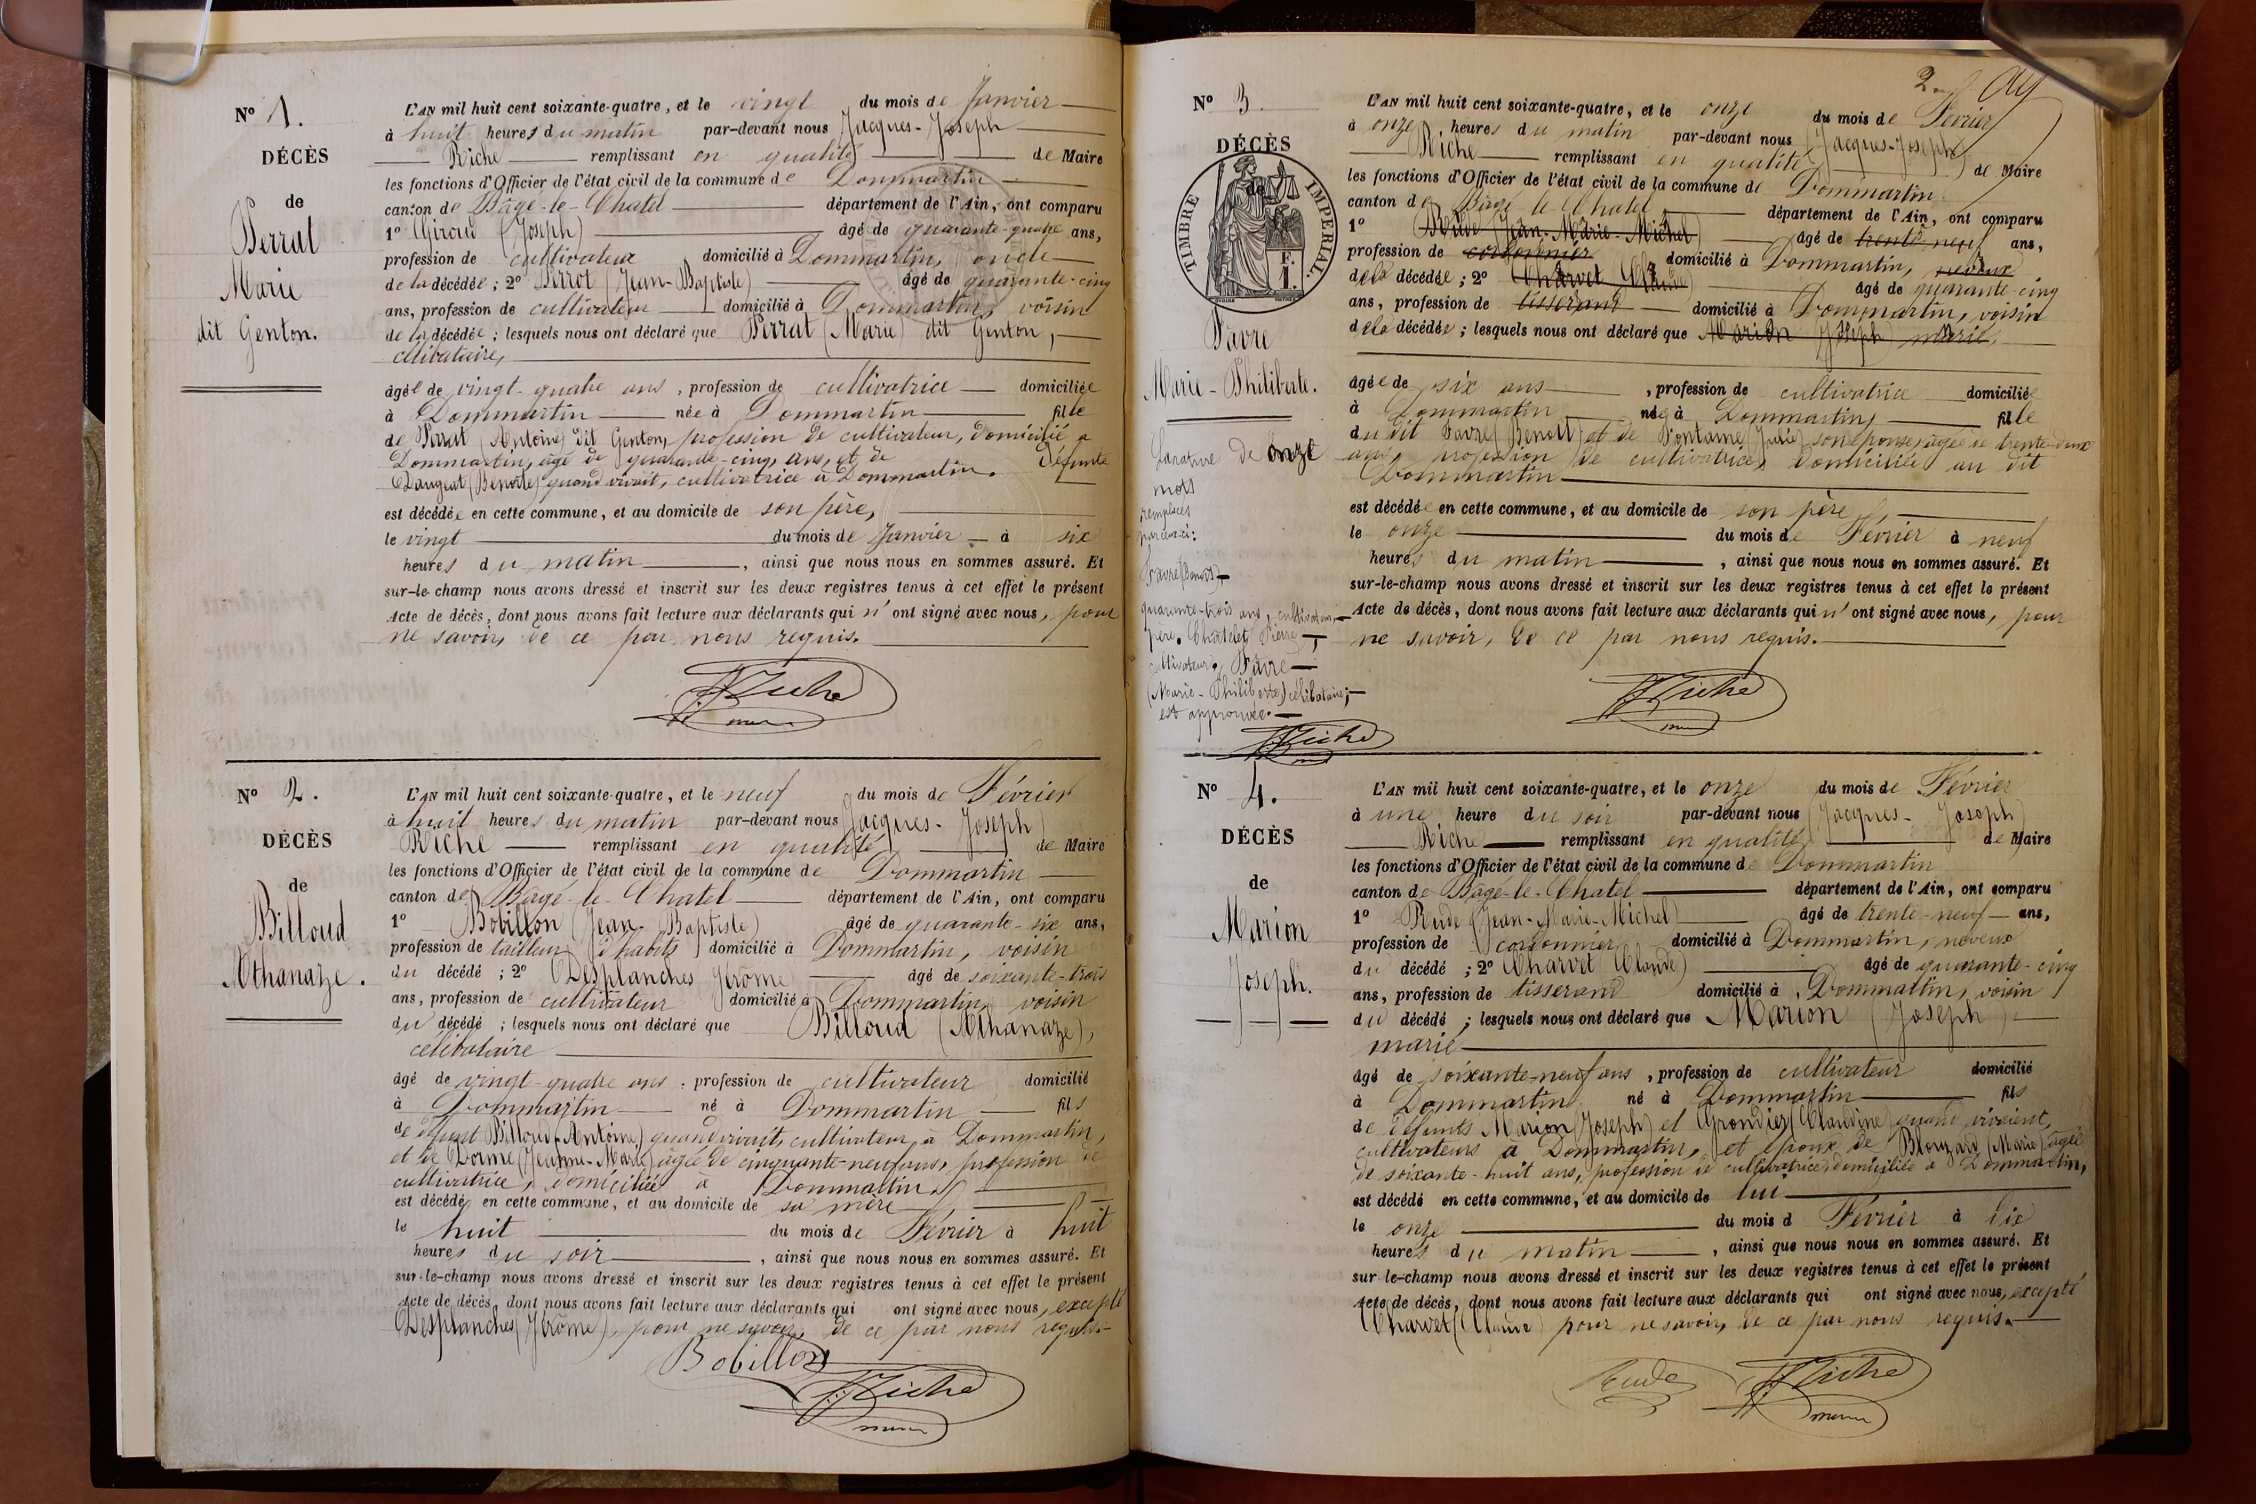 N° 1.
DÉCÈS
de
Perrat
Marie
dit Genton.
L'AN mil huit cent soixante-quatre, et le vingt du mois de Janvier
à huit heures du matin par-devant nous (Jacques-Joseph)
Riche remplissant en qualité de Maire
les fonctions d'Officier de l'état civil de la commune de Dommartin
canton de Bâgé-le-Chatel département de l'Ain, ont comparu
1° Giroud (Joseph) âgé de quarante-quatre ans,
profession de cultivateur domicilié à Dommartin, oncle
de la décédée ; 2° Perrot (Jean-Baptiste) âgé de quarante-cinq
ans, profession de cultivateur domicilié à Dommartin, voisin
de la décédée ; lesquels nous ont déclaré que Perrat (Marie) dit Genton,
célibataire,
âgée de vingt-quatre ans, profession de cultivatrice domiciliée
à Dommartin née à Dommartin fille
de Perrat (Antoine) dit Genton, profession de cultivateur, domicilié à
Dommartin, âgé de quarante-cinq ans, et de défunte
Dangeat (Benoite) quand vivait, cultivatrice à Dommartin.
est décédée en cette commune, et au domicile de son père,
le vingt du mois de Janvier à six
heures du matin, ainsi que nous nous en sommes assuré. Et
sur-le-champ nous avons dressé et inscrit sur les deux registres tenus à cet effet le présent
Acte de décès, dont nous avons fait lecture aux déclarants qui n'ont signé avec nous, pour
ne savoir, de ce par nous requis.
Riche
N° 2.
DÉCÈS
de
Billoud
Athanaze.
L'AN mil huit cent soixante-quatre, et le neuf du mois de Février
à huit heures du matin par-devant nous (Jacques-Joseph)
Riche remplissant en qualité de Maire
les fonctions d'Officier de l'état civil de la commune de Dommartin
canton de Bâgé-le-Chatel département de l'Ain, ont comparu
1° Bobillon (Jean-Baptiste) âgé de quarante-six ans,
profession de tailleur d'habits domicilié à Dommartin, voisin
du décédé ; 2° Desplanches Jérôme âgé de soixante-trois
ans, profession de cultivateur domicilié à Dommartin, voisin
du décédé ; lesquels nous ont déclaré que Billoud (Athanaze),
célibataire
âgé de vingt-quatre ans, profession de cultivateur domicilié
à Dommartin né à Dommartin fils
de défunt Billoud (Antoine) quand vivait, cultivateur à Dommartin,
et de Dorme (Jeanne-Marie) âgée de cinquante-neuf ans, profession de
cultivatrice, domiciliée à Dommartin,
est décédé en cette commune, et au domicile de sa mère
le huit du mois de Février à huit
heures du soir, ainsi que nous nous en sommes assuré. Et
sur-le-champ nous avons dressé et inscrit sur les deux registres tenus à cet effet le présent
Acte de décès, dont nous avons fait lecture aux déclarants qui ont signé avec nous, excepté
Desplanches (Jérôme), pour ne savoir, de ce par nous requis.
Bobillon
Riche
2
N° 3.
DÉCÈS
de
TIMBRE IMPÉRIAL
F.
1.
Favre
Marie-Philiberte.
La rature de onze
mots
remplacés
par ceux-ci:
Favre (Benoit)
quarante-trois ans, cultivateur,
père. Chatelet Pierre,
cultivateur, Favre
(Marie-Philiberte) célibataire;
est approuvée.
Riche
L'AN mil huit cent soixante-quatre, et le onze du mois de Février
à onze heures du matin par-devant nous (Jacques-Joseph)
Riche remplissant en qualité de Maire
les fonctions d'Officier de l'état civil de la commune de Dommartin
canton de Bâgé-le-Chatel département de l'Ain, ont comparu
1° Rude (Jean-Marie-Michel) âgé de trente-neuf ans,
profession de cordonnier domicilié à Dommartin, neveux
de la décédée ; 2° Charvet (Claude) âgé de quarante-cinq
ans, profession de tisserand domicilié à Dommartin, voisin
de la décédée ; lesquels nous ont déclaré que Marion (Joseph) marié,
âgée de six ans, profession de cultivatrice domiciliée
à Dommartin née à Dommartin, fille
du dit Favre (Benoit) et de Fontaine (Julie) son épouse, âgée de trente-deux
ans, profession de cultivatrice, domiciliée au dit
Dommartin
est décédée en cette commune, et au domicile de son père
le onze du mois de Février à neuf
heures du matin, ainsi que nous nous en sommes assuré. Et
sur-le-champ nous avons dressé et inscrit sur les deux registres tenus à cet effet le présent
Acte de décès, dont nous avons fait lecture aux déclarants qui n'ont signé avec nous, pour
ne savoir, de ce par nous requis.
Riche
N° 4.
DÉCÈS
de
Marion
Joseph.
L'AN mil huit cent soixante-quatre, et le onze du mois de Février
à une heure du soir par-devant nous (Jacques-Joseph)
Riche remplissant en qualité de Maire
les fonctions d'Officier de l'état civil de la commune de Dommartin
canton de Bâgé-le-Chatel département de l'Ain, ont comparu
1° Rude (Jean-Marie-Michel) âgé de trente-neuf ans,
profession de cordonnier domicilié à Dommartin, neveux
du décédé ; 2° Charvet (Claude) âgé de quarante-cinq
ans, profession de tisserand domicilié à Dommartin, voisin
du décédé ; lesquels nous ont déclaré que Marion (Joseph)
marié
âgé de soixante-neuf ans, profession de cultivateur domicilié
à Dommartin né à Dommartin fils
de défunts Marion (Joseph) et Grondier (Claudine) quand vivaient,
cultivateurs à Dommartin, et époux de Blouzard (Marie) âgée
de soixante-huit ans, profession de cultivatrice, domiciliée à Dommartin,
est décédé en cette commune, et au domicile de lui
le onze du mois d Février à dix
heures du matin, ainsi que nous nous en sommes assuré. Et
sur-le-champ nous avons dressé et inscrit sur les deux registres tenus à cet effet le présent
Acte de décès, dont nous avons fait lecture aux déclarants qui ont signé avec nous, excepté
Charvet (Claude) pour ne savoir, de ce par nous requis.
Rude
Riche